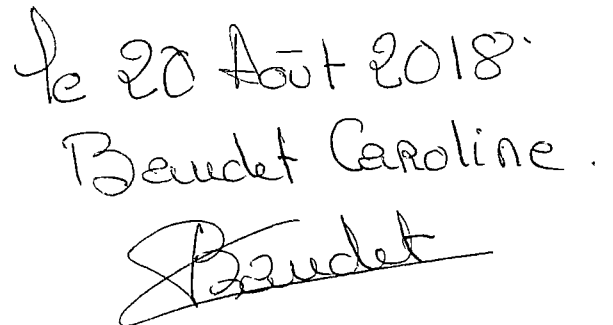 le 20 Août 2018
Beaudet Caroline.
Baudet